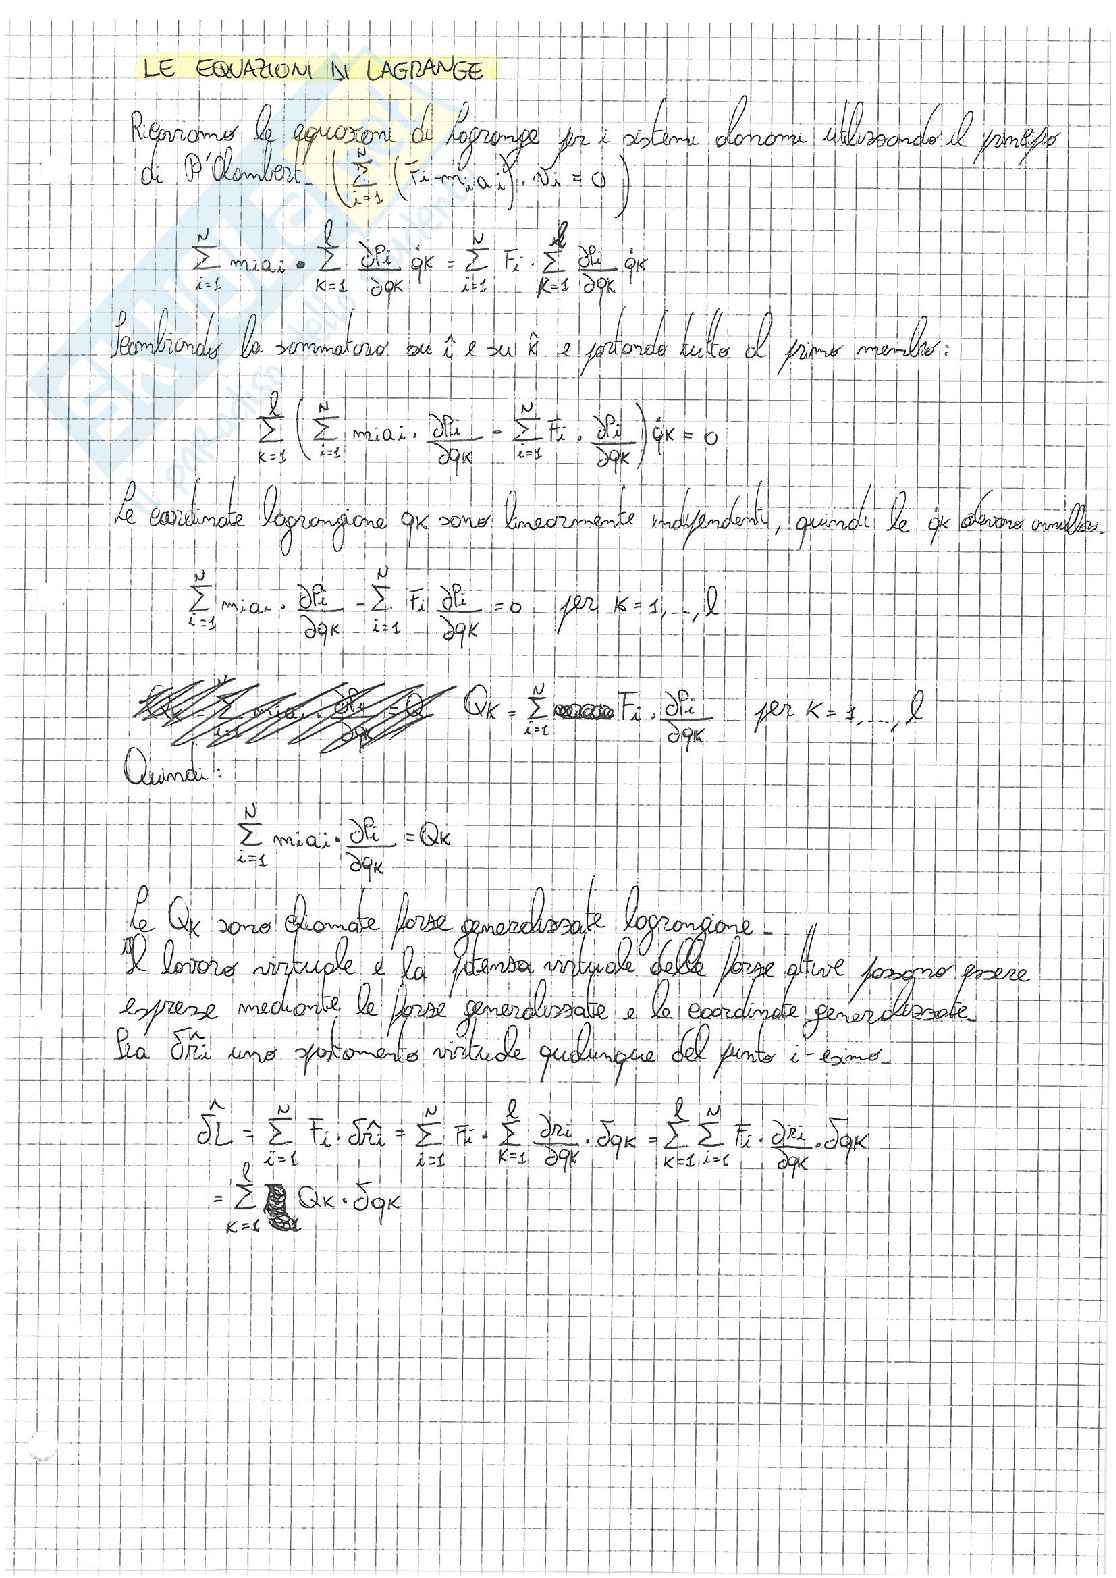 LE EQUAZIONI DI LAGRANGE
Ricaviamo le equazioni di Lagrange per i sistemi olonomi utilizzando il principio
di D'Alambert_ (∑_{i=1}^{N} (Fi - miai) · vi = 0)
∑_{i=1}^{N} miai · ∑_{k=1}^{l} ∂Pi/∂qk q̇k = ∑_{i=1}^{N} Fi · ∑_{k=1}^{l} ∂Pi/∂qk q̇k
Scambiando la sommatoria su î e su k̂ e portando tutto al primo membro:
∑_{k=1}^{l} (∑_{i=1}^{N} miai · ∂Pi/∂qk - ∑_{i=1}^{N} Fi · ∂Pi/∂qk) q̇k = 0
Le coordinate lagrangiane qk sono linearmente indipendenti, quindi le q̇k devono annullarsi.
∑_{i=1}^{N} miai · ∂Pi/∂qk - ∑_{i=1}^{N} Fi ∂Pi/∂qk = 0 per k = 1, .., l
Qk = ∑_{i=1}^{N} Fi · ∂Pi/∂qk per k = 1, ..., l
Quindi:
∑_{i=1}^{N} miai · ∂Pi/∂qk = Qk
Le Qk sono chiamate forze generalizzate lagrangiane_
Il lavoro virtuale e la potenza virtuale delle forze attive possono essere
espresse mediante le forze generalizzate e le coordinate generalizzate_
Sia δr̂i uno spostamento virtuale qualunque del punto i-esimo_
δ̂L = ∑_{i=1}^{N} Fi · δr̂i = ∑_{i=1}^{N} Fi · ∑_{k=1}^{l} ∂ri/∂qk · δqk = ∑_{k=1}^{l} ∑_{i=1}^{N} Fi · ∂ri/∂qk · δqk
= ∑_{k=1}^{l} Qk · δqk